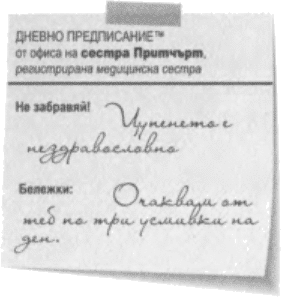 ДНЕВНО ПРЕДПИСАНИЕ™
от офиса на сестра Притчърт,
регистрирана медицинска сестра
Не забравяй!
Цупенето е
нездравословно
Бележки:
Очаквам от
теб по три усмивки на
ден.